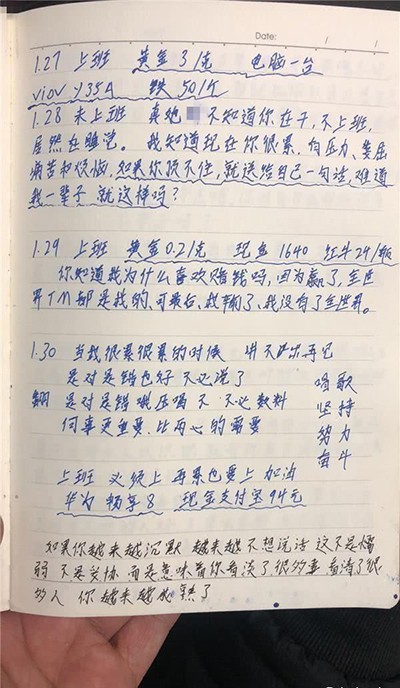 Date:
1.27 上班 黄金31克 电脑一台
viov y35A 铁50斤
1.28 未上班 真他 不知道你在干,不上班,
居然在睡觉。我知道现在你很累,有压力、委屈
痛苦和烦恼,如果你顶不住,就送给自己一句话,难道
我一辈子就这样吗?
1.29 上班 黄金0.21克 现金1640 红牛24/瓶
你知道我为什么喜欢赌钱吗,因为赢了,全世
界TM都是我的、可最后,我输了、我没有了全世界。
1.30 当我很累很累的时候 讲不出再见
是对是错也好 不必说了
是对是错 不 不必
何事更重要,比两心的需要
唱歌
坚持
努力
奋斗
上班 必须上 再累也要上 加油
华为 畅享8 现金支付宝94元
如果你越来越沉默 越来越不想说话 这不是懦
弱 不是妥协 而是意味着你看淡了很多事 看清了很
多人 你越来越成熟了